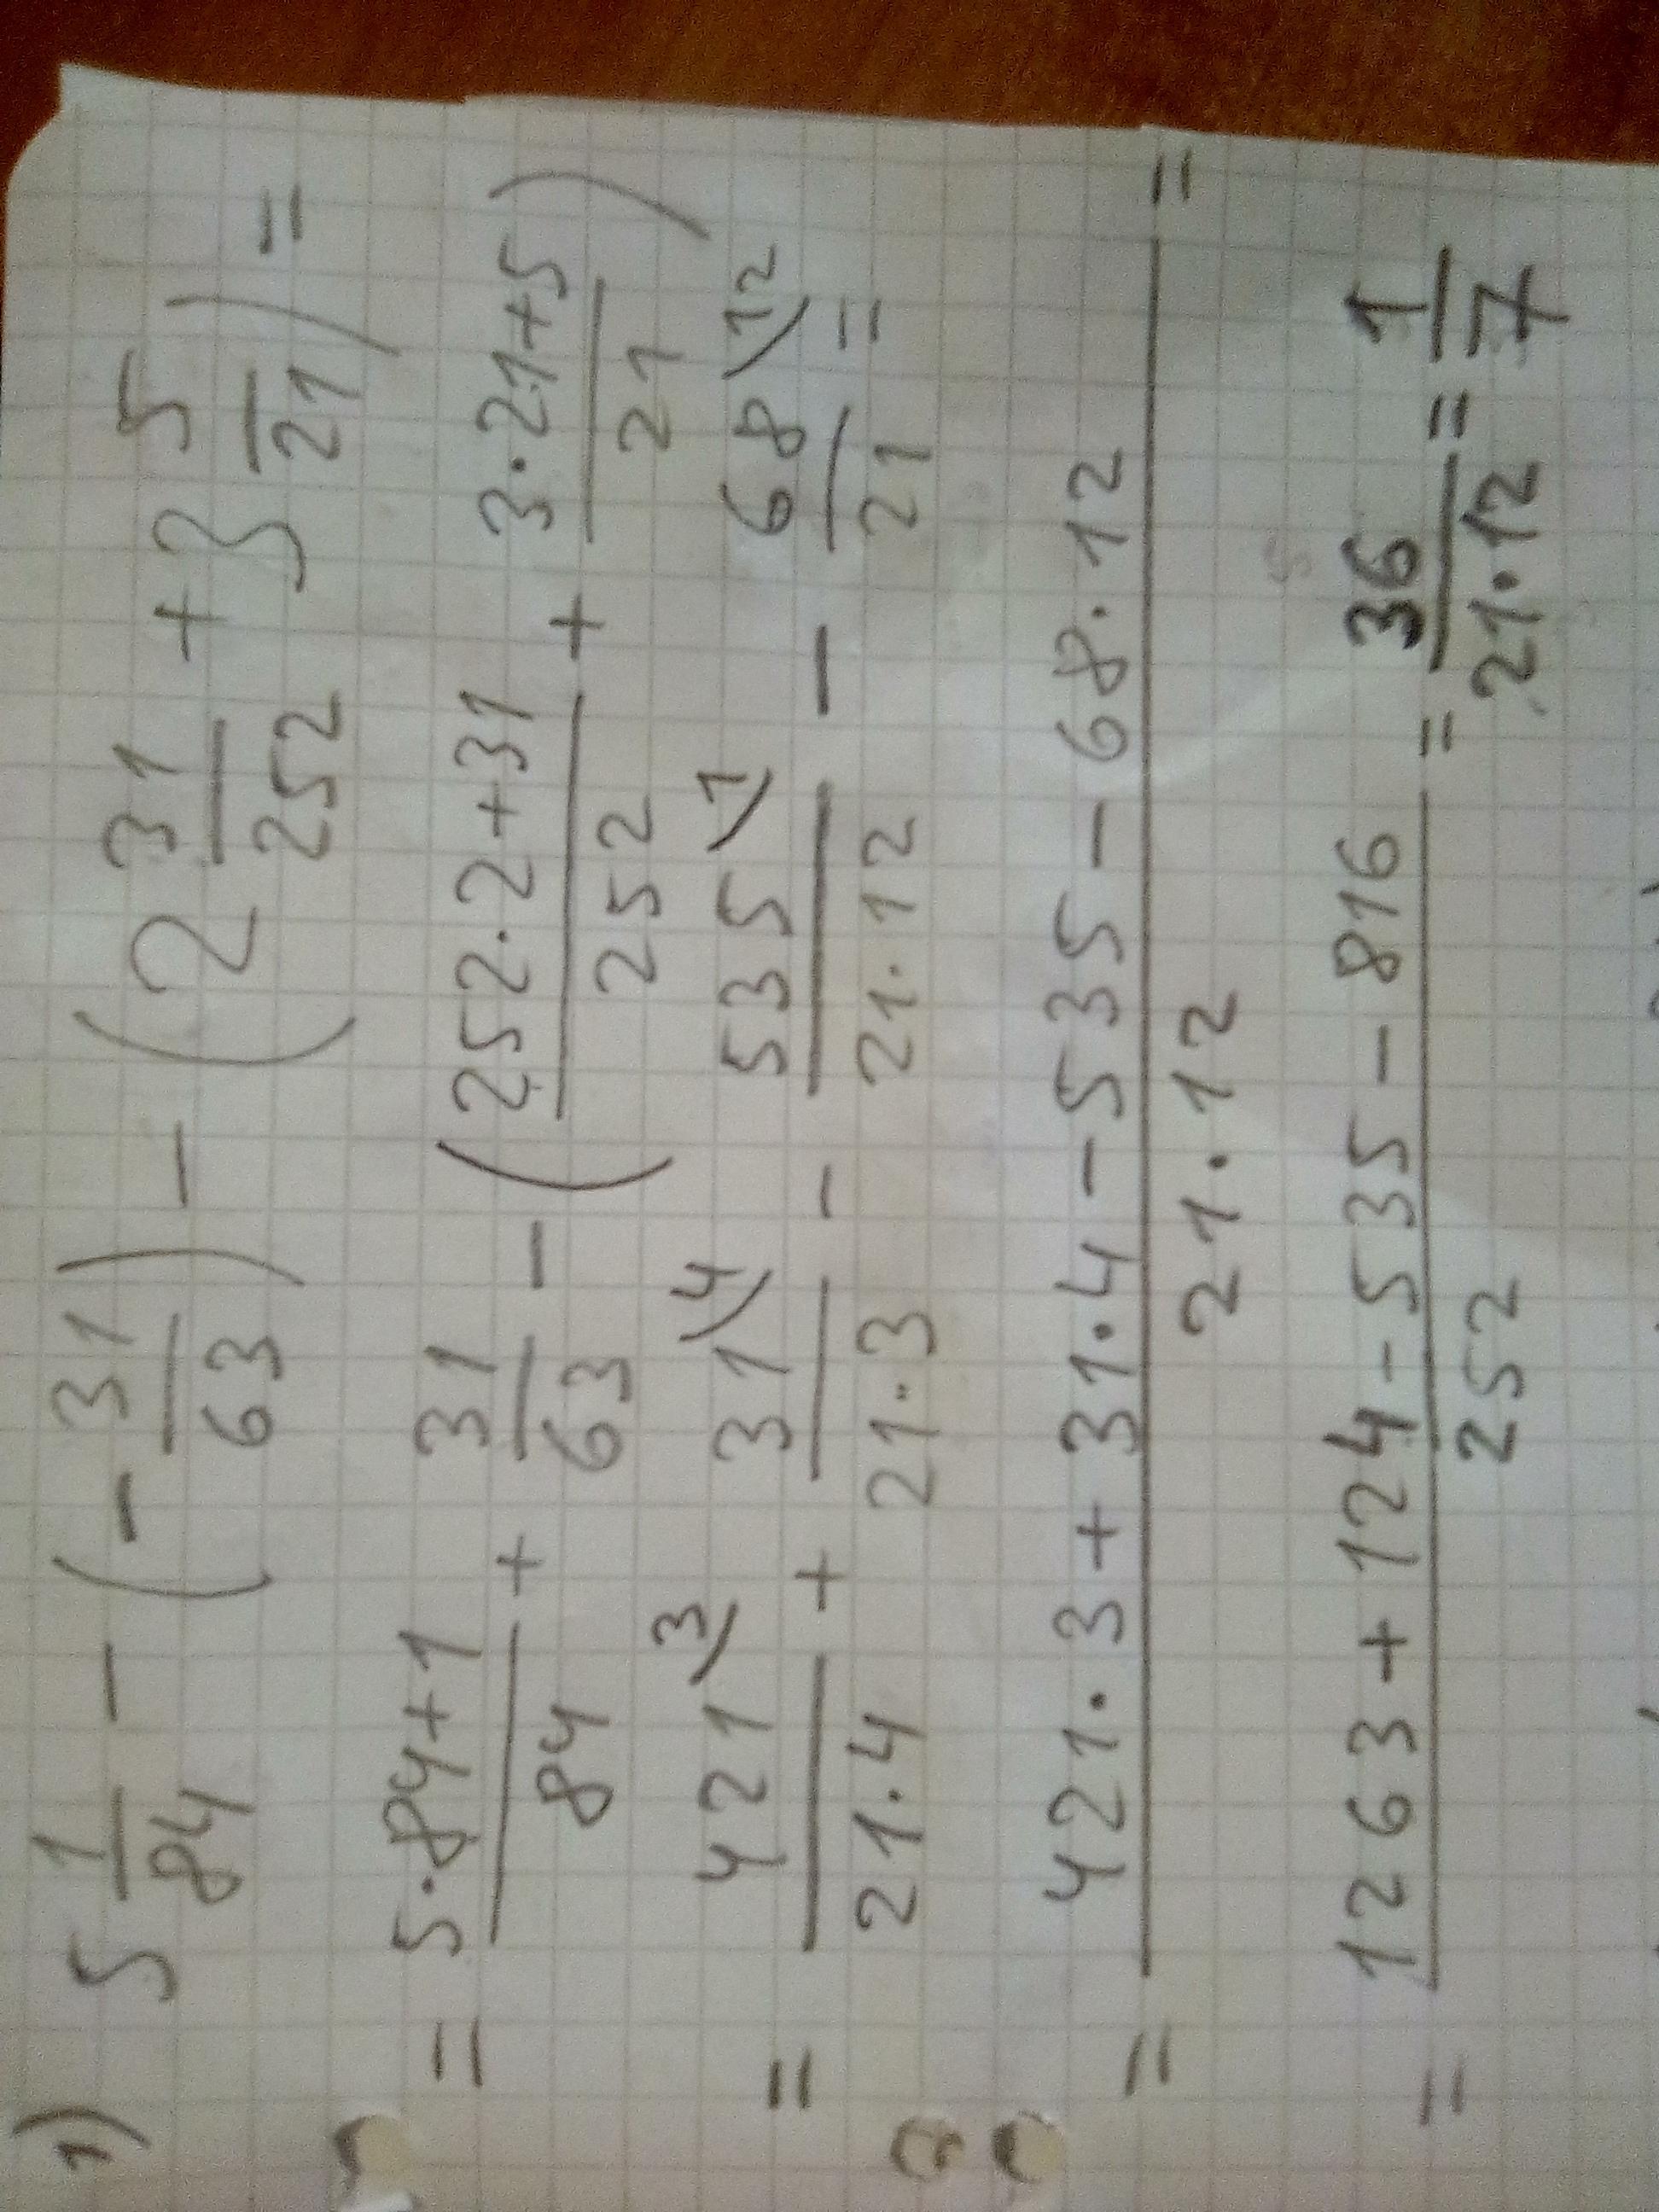 1) 5 1/84 - (- 31/63) - (2 31/252 + 3 5/21) =
= (5·84+1)/84 + 31/63 - ((252·2+31)/252 + (3·21+5)/21)
= 421\3/(21·4) + 31\4/(21·3) - 535\1/(21·12) - 68\12/21 =
= (421·3 + 31·4 - 535 - 68·12)/(21·12) =
= (1263 + 124 - 535 - 816)/252 = 36/(21·12) = 1/7